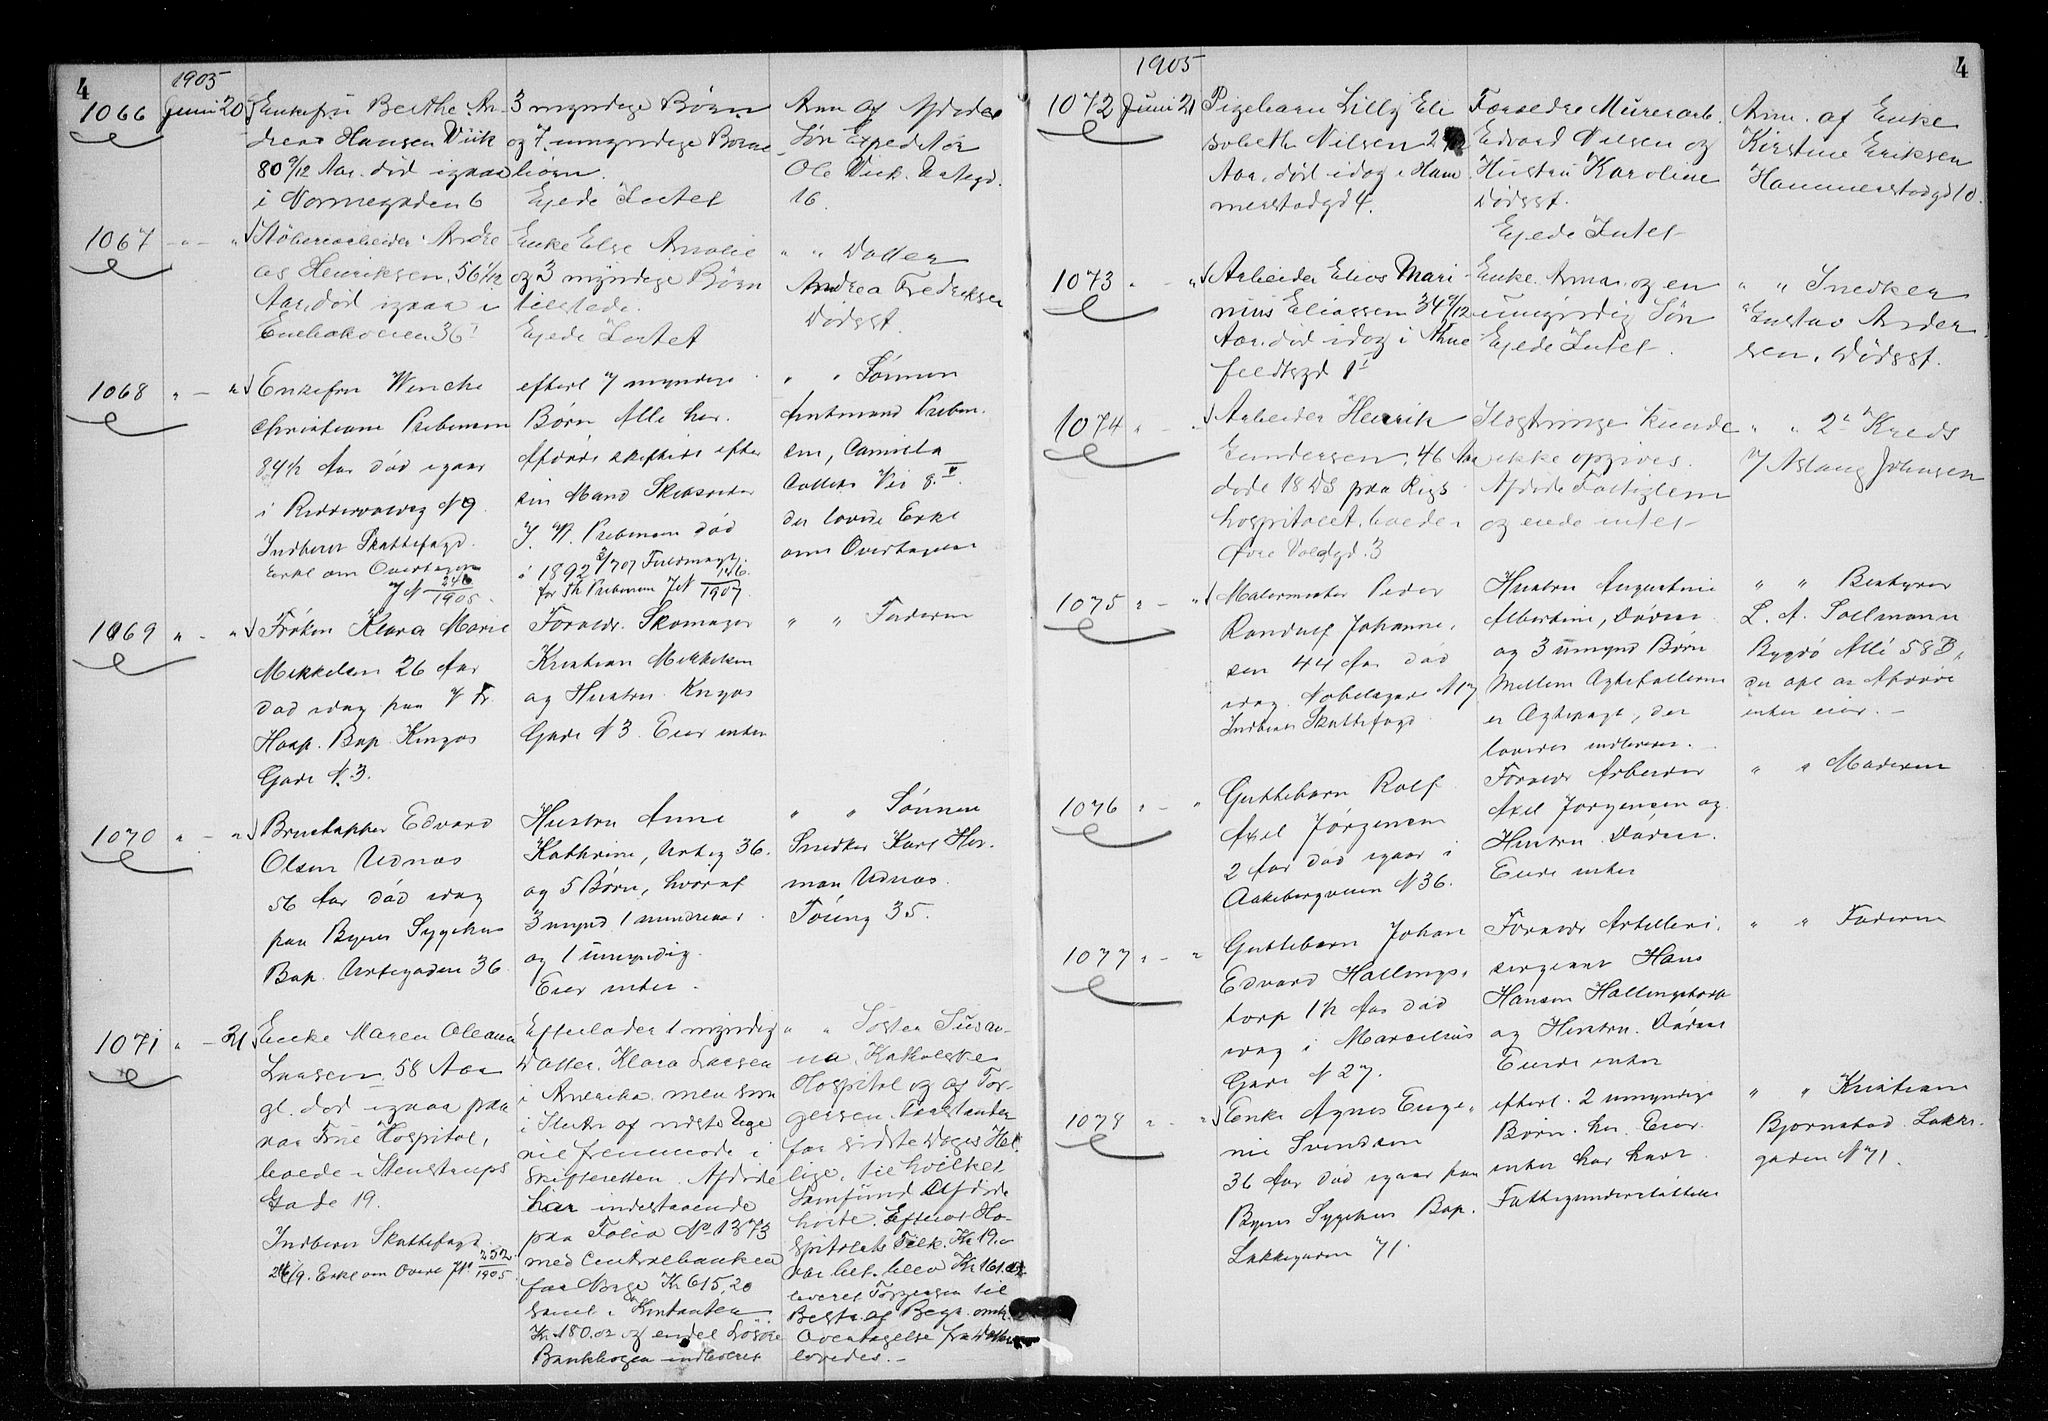 4
1905
1066 Juni 20 Enkefru Berthe An-
drea Hansen Viik
80 9/12 Aar. død igaar
i Normegaden 6
3 myndige Børn
og 7 umyndige Børne
børn.
Eiede Intet
Anm af Afdødes
Søn Expeditør
Ole Viik. Urtegd.
16.
1067 " - " Støberiarbeider Andre
as Henriksen, 56 1/12
Aar. død igaar i
36
Enke Else Amalie
og 3 myndige Børn
tilstede.
Eiede Intet
" " Datter
Andrea Fredriksen
Dødsst.
1068 " - " Enkefru Wenche
Christiane Prebensen
84 1/2 Aar død igaar
i N 9
Indberet Skattefogd.
Erkl om Overtagen
J N 246/1905.
efterl 7 myndige
Børn Alle her.
Afdøde skiftede efter
sin Mand
J. W. Prebensen død
i 1892 3/7 07 Fuldmagt
for Th Prebensen J N 146/1907.
" " Sønnen
Amtmand Preben-
sen, Camilla
Colletts Vei 8 II.
der lovede Erkl
om Overtagelse
1069 " - " Frøken Klara Marie
Mikkelsen 26 Aar
død idag paa V Fr.
Hosp. Bop. Kingos
Gade N. 3.
Foreldr. Skomager
Kristian Mikkelsen
og Hustru Kingos
Gade N 3. Eier intet
" " Faderen
1070 " - " Brustapper Edvard
Olsen Udnæs
56 Aar død idag
paa Byens Sygehus
Bop. Urtegaden 36
Hustru Anne
Kathrine, Urteg 36.
og 5 Børn, hvoraf
3 mynd 1 mindreaar.
og 1 umyndig.
Eier intet.
" " Sønnen
Snedker Karl Her-
man Udnæs.
Tøieng 35.
1071 " - 21 Enke Maren Oleana
Larsen, 58 Aar
gl. død igaar paa
Vor Frue Hospital,
boede i Stenstrups
Gade 19.
Indberet Skattefogd
26/9. Erkl om Overt J N 252/1905.
Efterlader 1 myndig
Datter, Klara Larsen
i Amerika men som
i Slutn af næste Uge
vil fremmøde i
Skifteretten. Afdøde
har indestaaende
paa Folio No 1373
med Centralbanken
for Norge Kr 615,20
samt i Kontanter
Kr 180.02 og endel Løsøre
Bankbogen indleveret
" " Søster Susan-
na, Katholske
Hospital og af Tor-
gersen. Forstander
for sidste Dages Hel-
lige, til hvilket
Samfund Afdøde
hørte. Efterat Ho-
spitalets Tilk. Kr 19.
var bet. blev Kr 161.02
leveret Torgersen til
Bestr. af Begr. omk.
Overtagelse fra Datter
lovedes.-
4
1905
1072 Juni 21 Pigebarn Lilly Eli
sabeth Nilsen 2
Aar, død idag i Ham
merstadgd 4.
Forældre Murerarb.
Edvard Nilsen og
Hustru Karoline
Dødsst.
Eiede Intet
Anm. af Enke
Kirstine Eriksen
Hammerstadgd 10.
1073 " - " Arbeider Elias Mari-
nius Eliassen 34 9/12
Aar. død idag i Thue
feldtsgd 1 I
Enke Anna og en
umyndig Søn
Eiede Intet.
" " Snedker
Gustav Ander
sen, Dødsst.
1074 " - " Arbeider Henrik
Gundersen, 46 Aar
døde 18 ds paa Rigs
hospitalet, boede i
Øvre Voldgd. 3
Slægtninge kunde
ikke opgives.
Afdøde Fattiglem
og eiede intet
" " 2 Kreds
v/ Aslaug Johnsen
1075 " - " Malermester Peder
Randulf Johanne-
sen 44 Aar død
idag. Nobelsgade N 17
Indberet Skattefogd
Hustru Augustine
Albertine, Døden
og 3 umynd Børn
Mellem Ægtefællerne
er Ægtepagt, der
lovedes indleveret.
" " Bestyrer
L. A. Sollmann
Bygdø Allé 58 B,
der opl at Afdøde
intet eier.-
1076 " - " Guttebarn Rolf
Axel Jørgensen
2 Aar død igaar i
Aakebergveien N 36.
Foreldr Arbeider
Axel Jørgensen og
Hustru Døden.
Eiede intet
" " Moderen
1077 " - " Guttebarn Johan
Edvard Hallings-
torp 1 1/2 Aar død
idag i Marcelius
Gade N 27.
Foreldr Artelleri-
sergeant Hans
Hansen Hallingstorp
og Hustru. Døden
Eiede intet
" " Faderen
1078 " - " Enke Agnes Euge-
nie Svendsen
36 Aar død igaar paa
Byens Sygehus Bop.
Lakkegaden 71.
efterl. 2 umyndige
Børn. her. Eier
intet har havt
Fattigunderstøttelse
" " Kristiane
Bjørnstad Lakke-
gaden N 71.